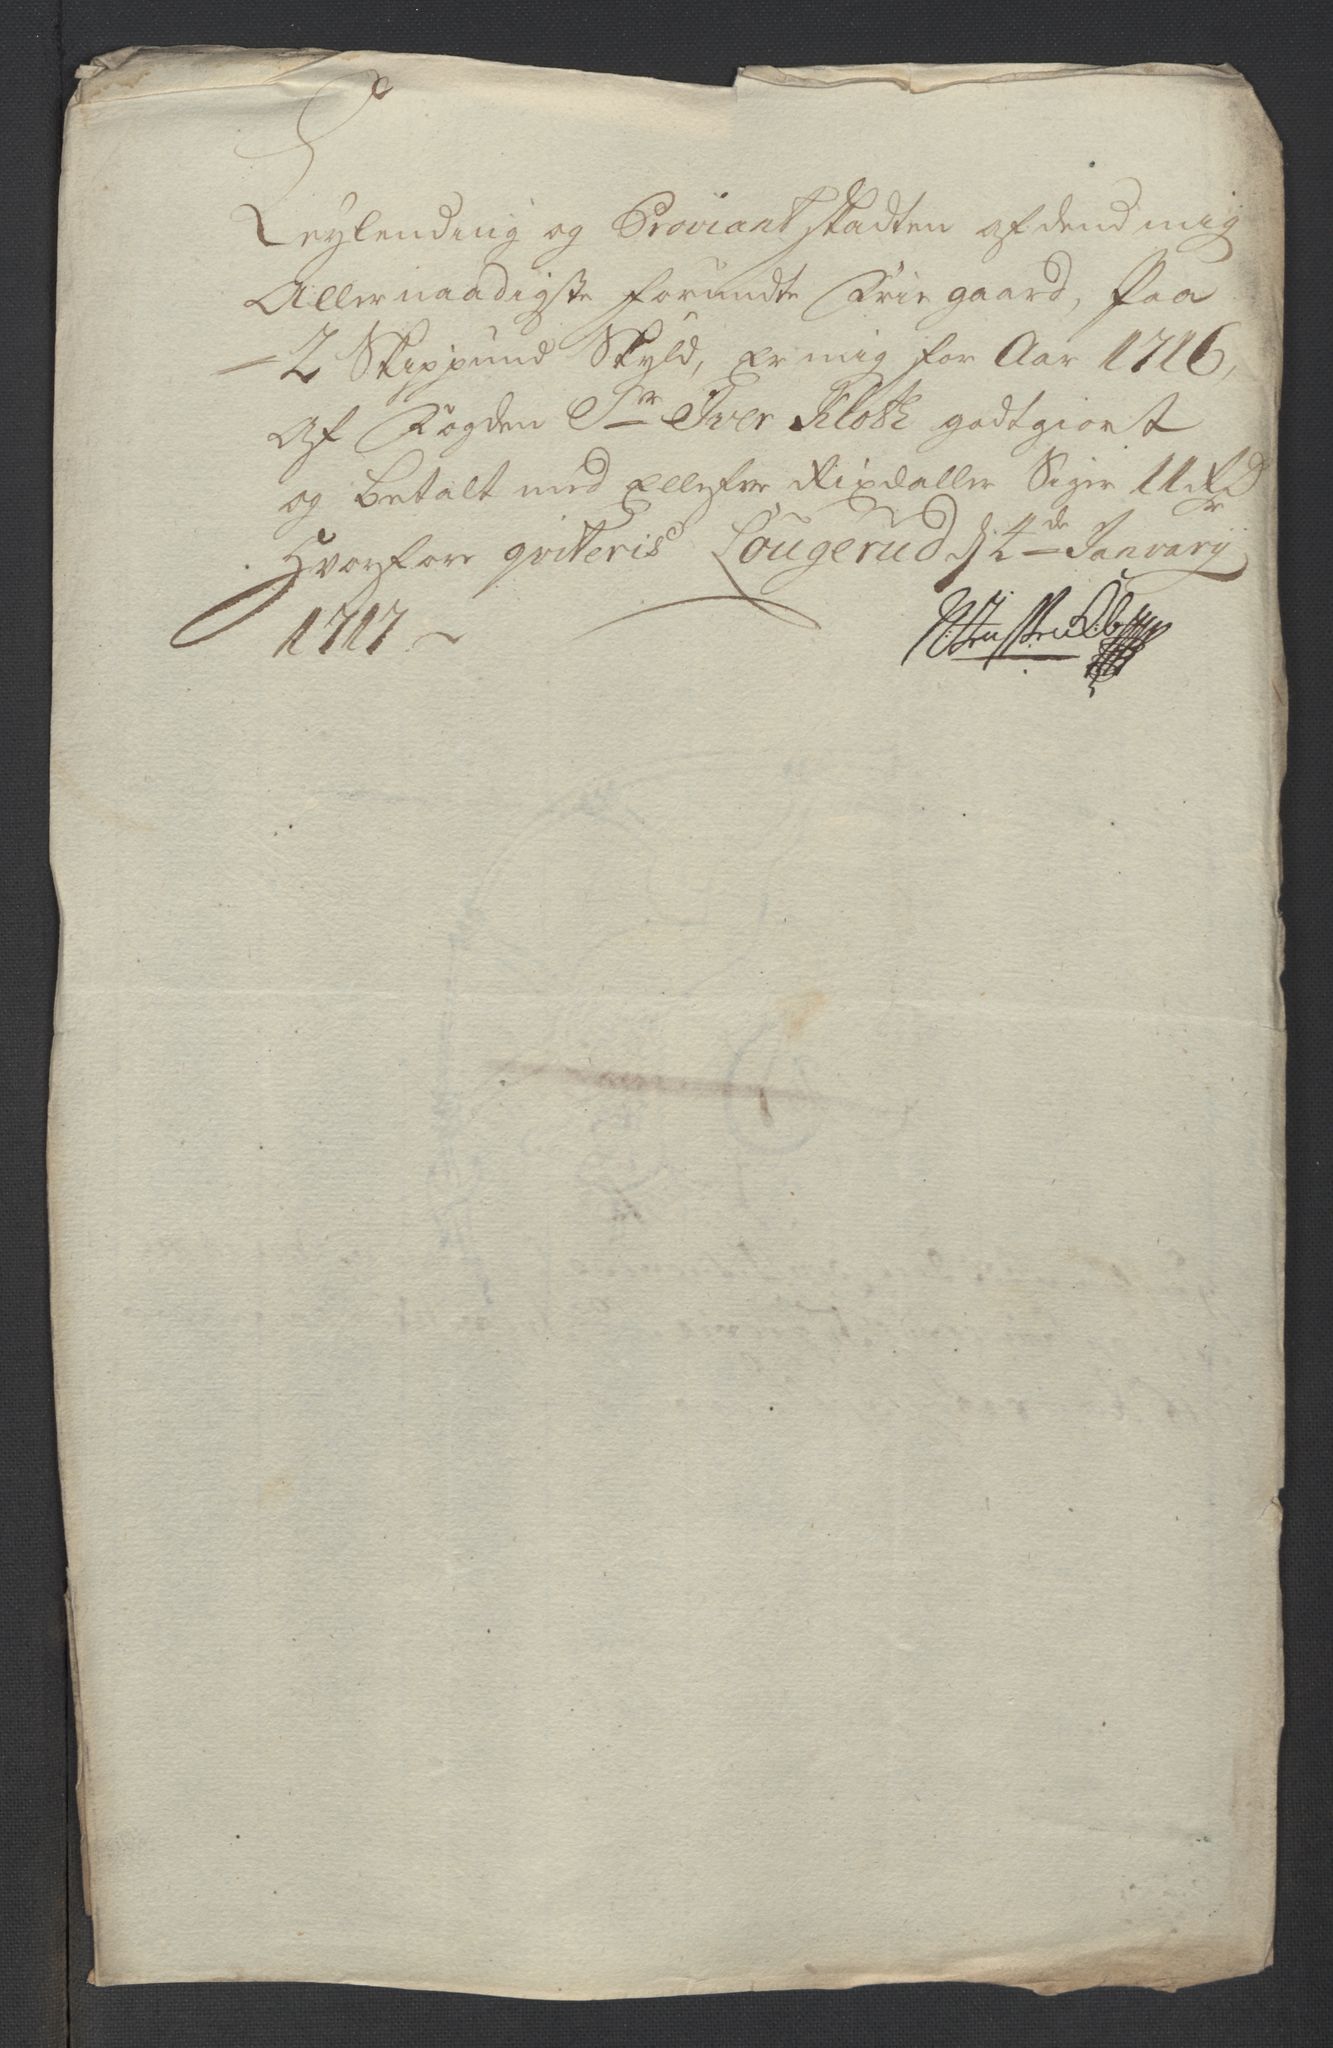 Leylending og Proviant skadten af dend mig
Allernaadigste forundte Friegaard, Paa
2 Skippund Skyld, er mig for Aar 1716,
Af Fogden Sr Iver Klokk godtgiort
og betalt med Ellefve Rixdaller Siger 11 Rdr
Hvorfore qviteris Lougerud d 4de Ianvary
1717